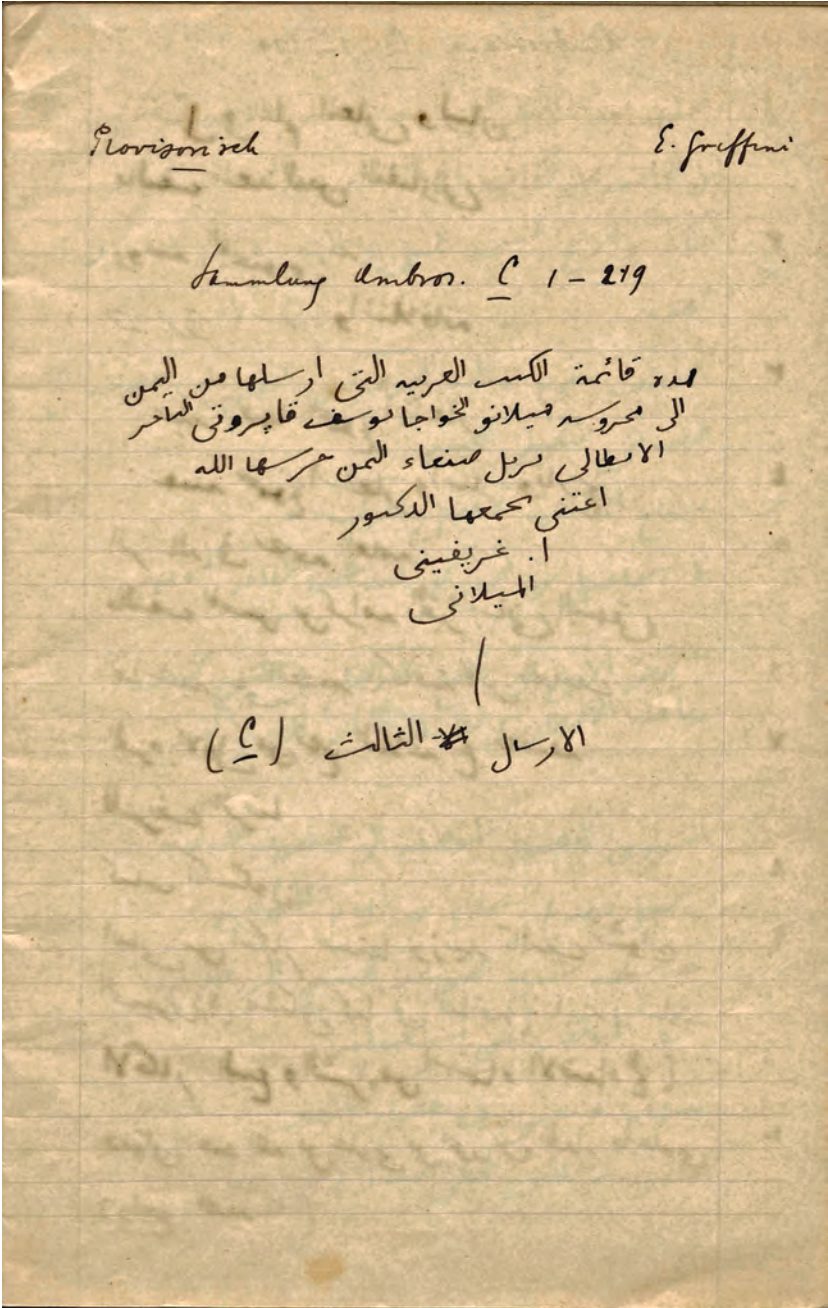 Provisorisch E. Griffini
Sammlung Ambros. C 1 - 219
هذه قائمة الكتب العربيه التى ارسلها من اليمن
الى محروسه ميلانو الخواجا يوسف قاپروتى التاجر
الايطالى نزيل صنعاء اليمن حرسها الله
اعتنى بجمعها الدكتور
ا. غريفينى
الميلانى
الارسال الثالث (C)